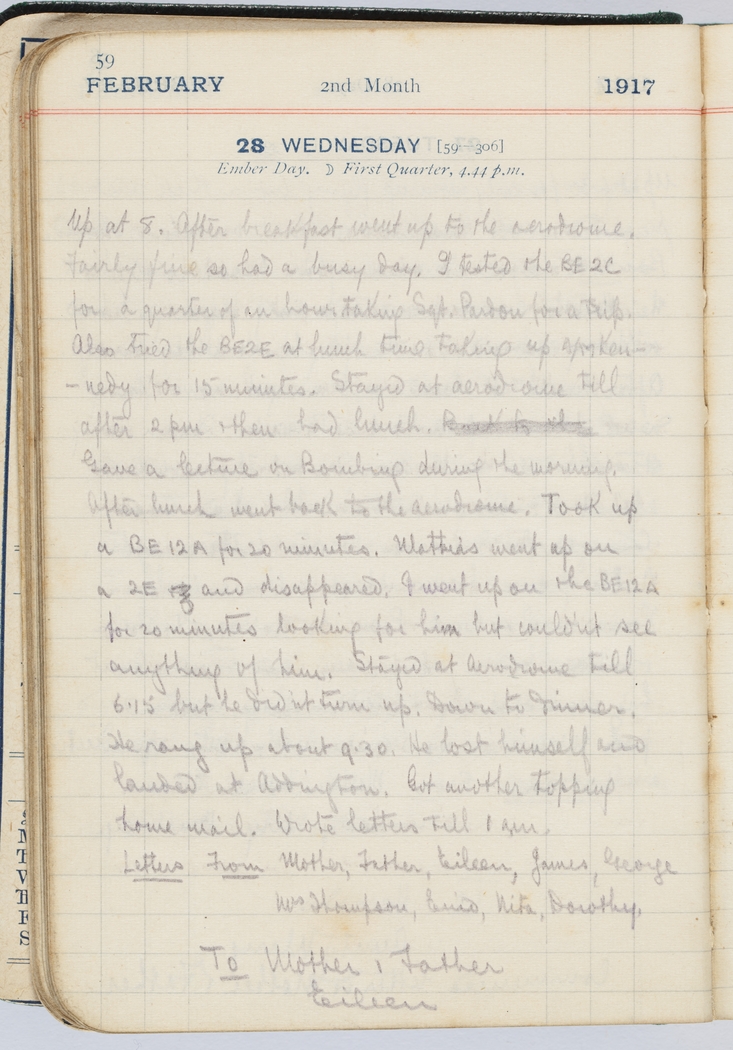 59
FEBRUARY 2nd Month 1917
28 WEDNESDAY [59-306]
Ember Day. ☽ First Quarter, 4.44 p.m.
Up at 8. After breakfast went up to the aerodrome.
Fairly fine so had a busy day. I tested the BE2C
for a quarter of an hour taking Sgt. Pardon for a trip.
Also tried the BE2E at lunch time taking up Ken-
-nedy for 15 minutes. Stayed at aerodrome till
after 2 pm then had lunch. Back to the
Gave a lecture on Bombing during the morning.
After lunch went back to the aerodrome. Took up
a BE12A for 20 minutes. Mathias went up on
a 2E and disappeared. I went up on the BE12A
for 20 minutes looking for him but couldn't see
anything of him. Stayed at Aerodrome till
6.15 but he didn't turn up. Down to dinner.
He rang up about 9.30. He lost himself and
landed at Addington. Got another topping
home mail. Wrote letters till 1 am.
Letters From Mother, Father, Eileen, James, George
Mrs Thompson, Enid, Nita, Dorothy.
To Mother, Father
Eileen
M
T
F
S